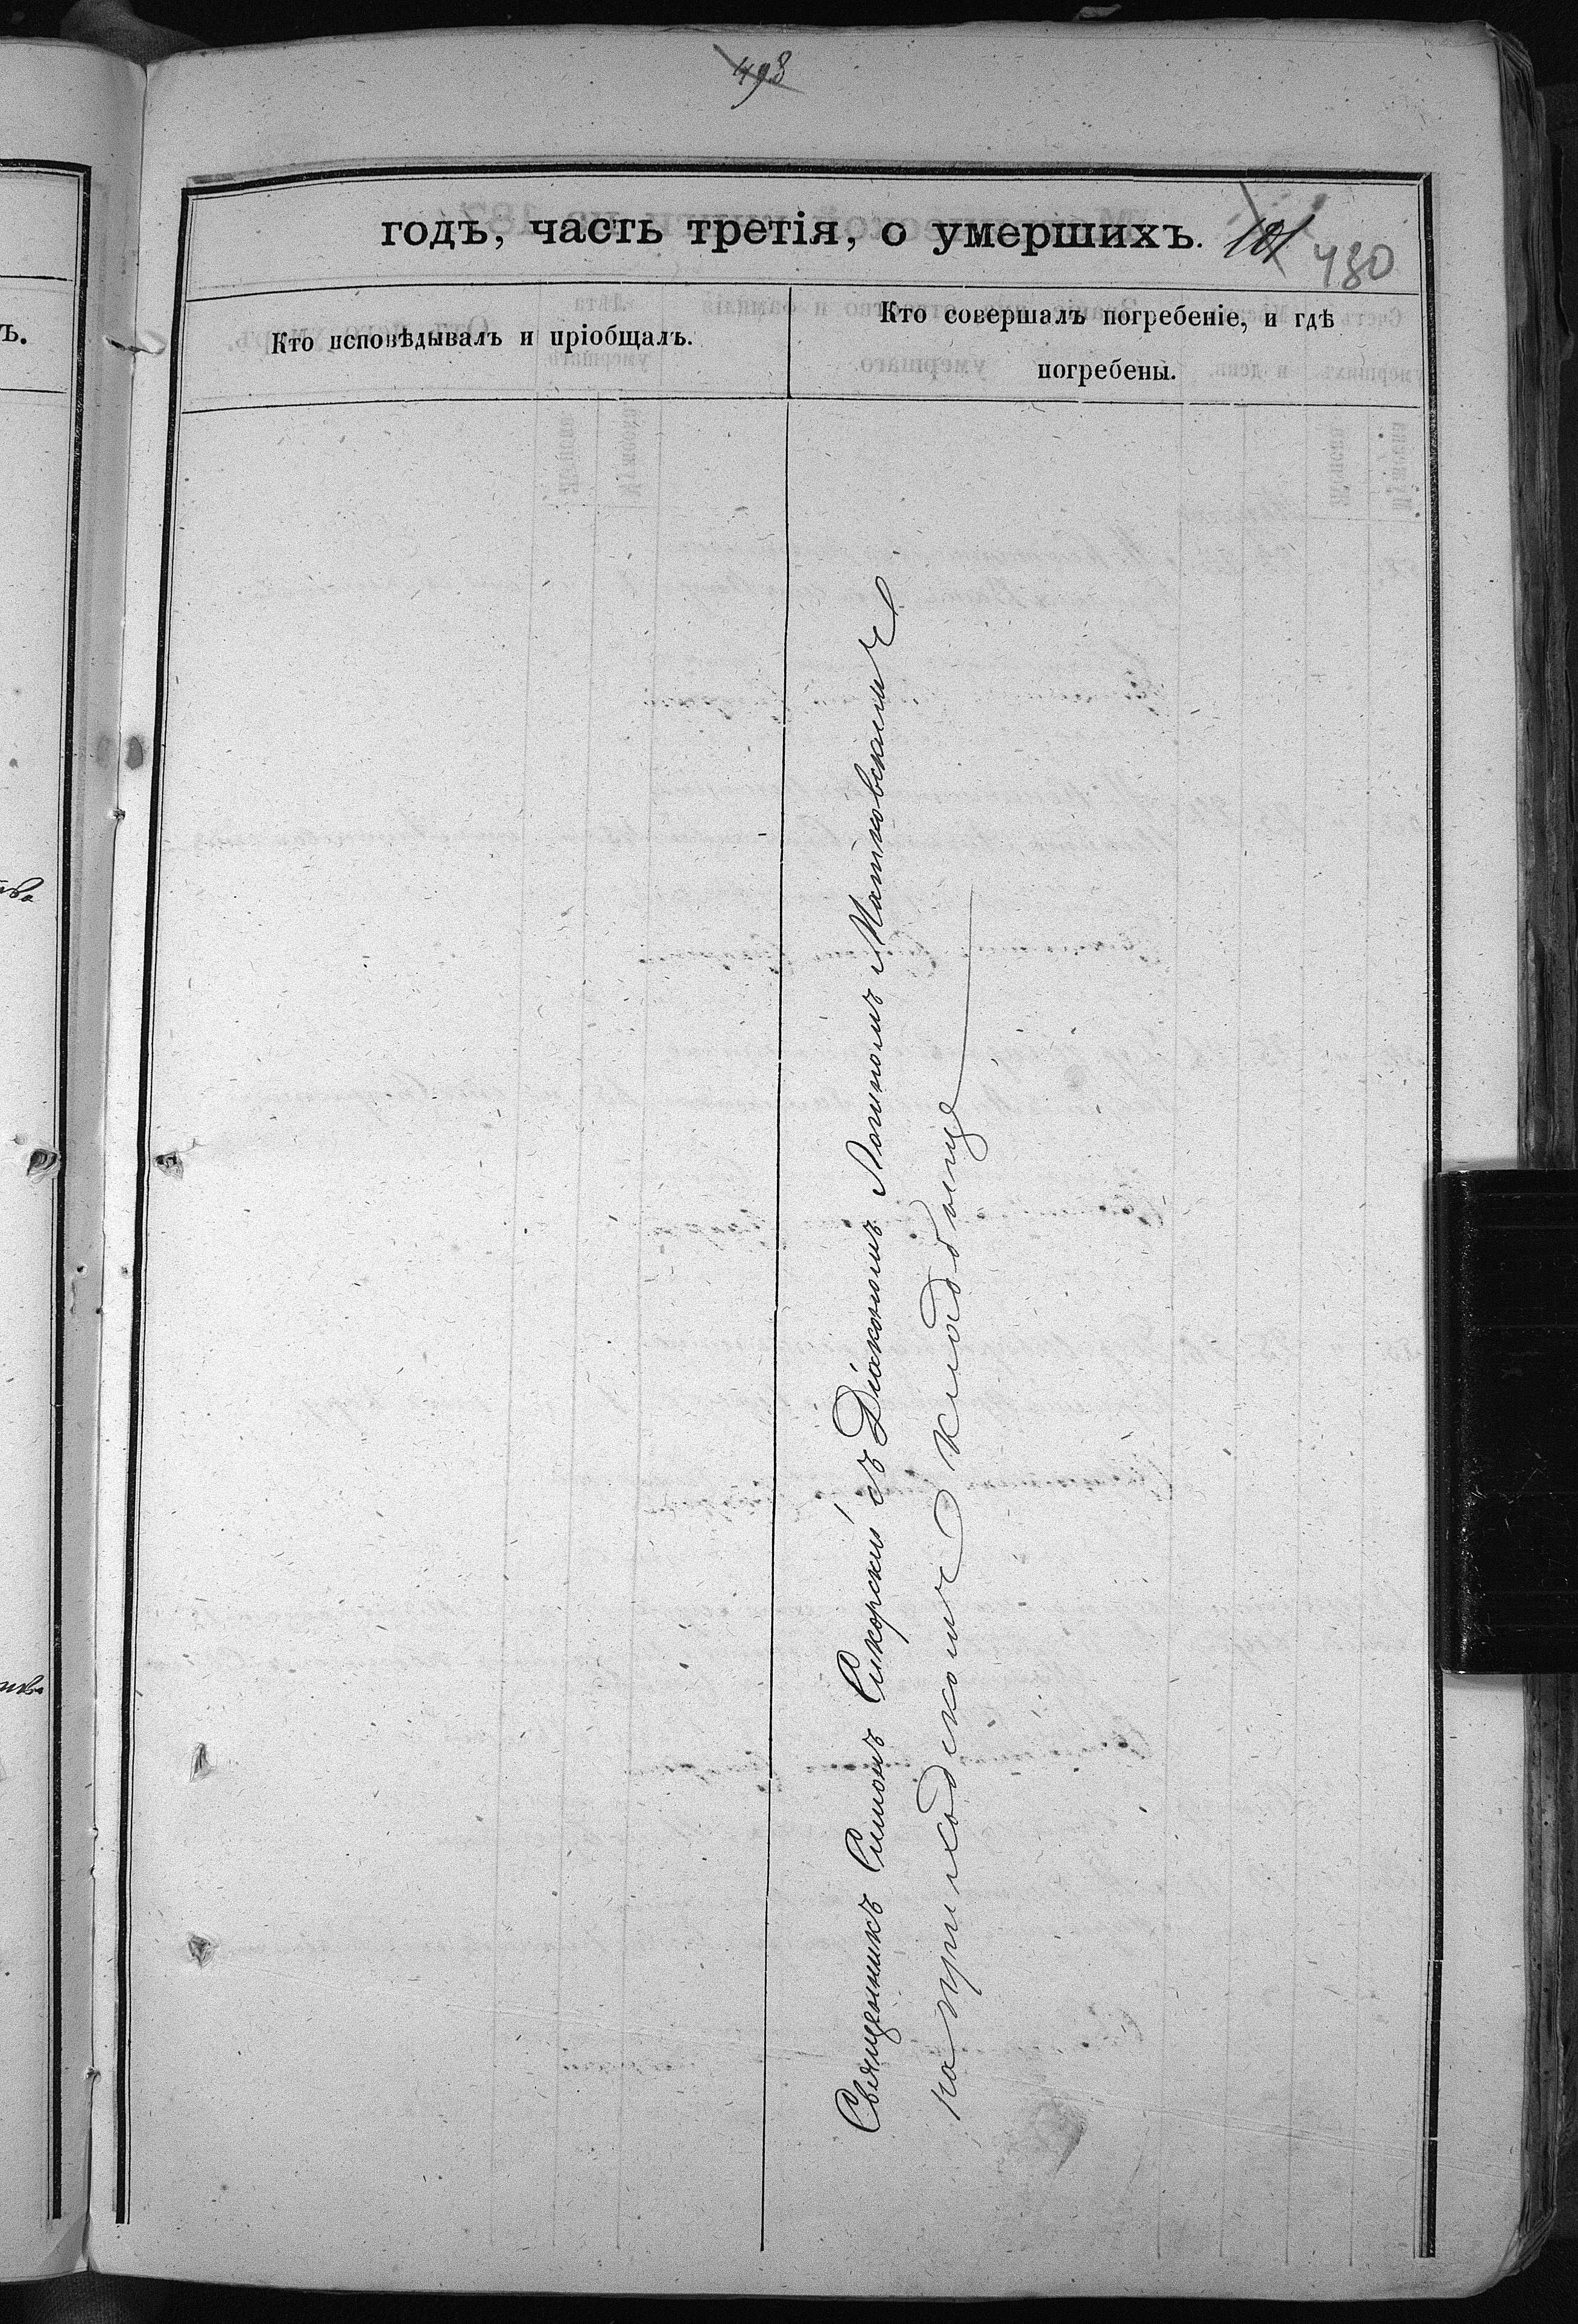 498
годъ, часть третія, о умершихъ. 101 480
Кто исповѣдывалъ и пріобщалъ.
Кто совершалъ погребеніе, и гдѣ
погребены.
Священникъ Симонъ Сикорскій съ Діакономъ Логиномъ Матковскимъ
на приходскомъ кладбищѣ